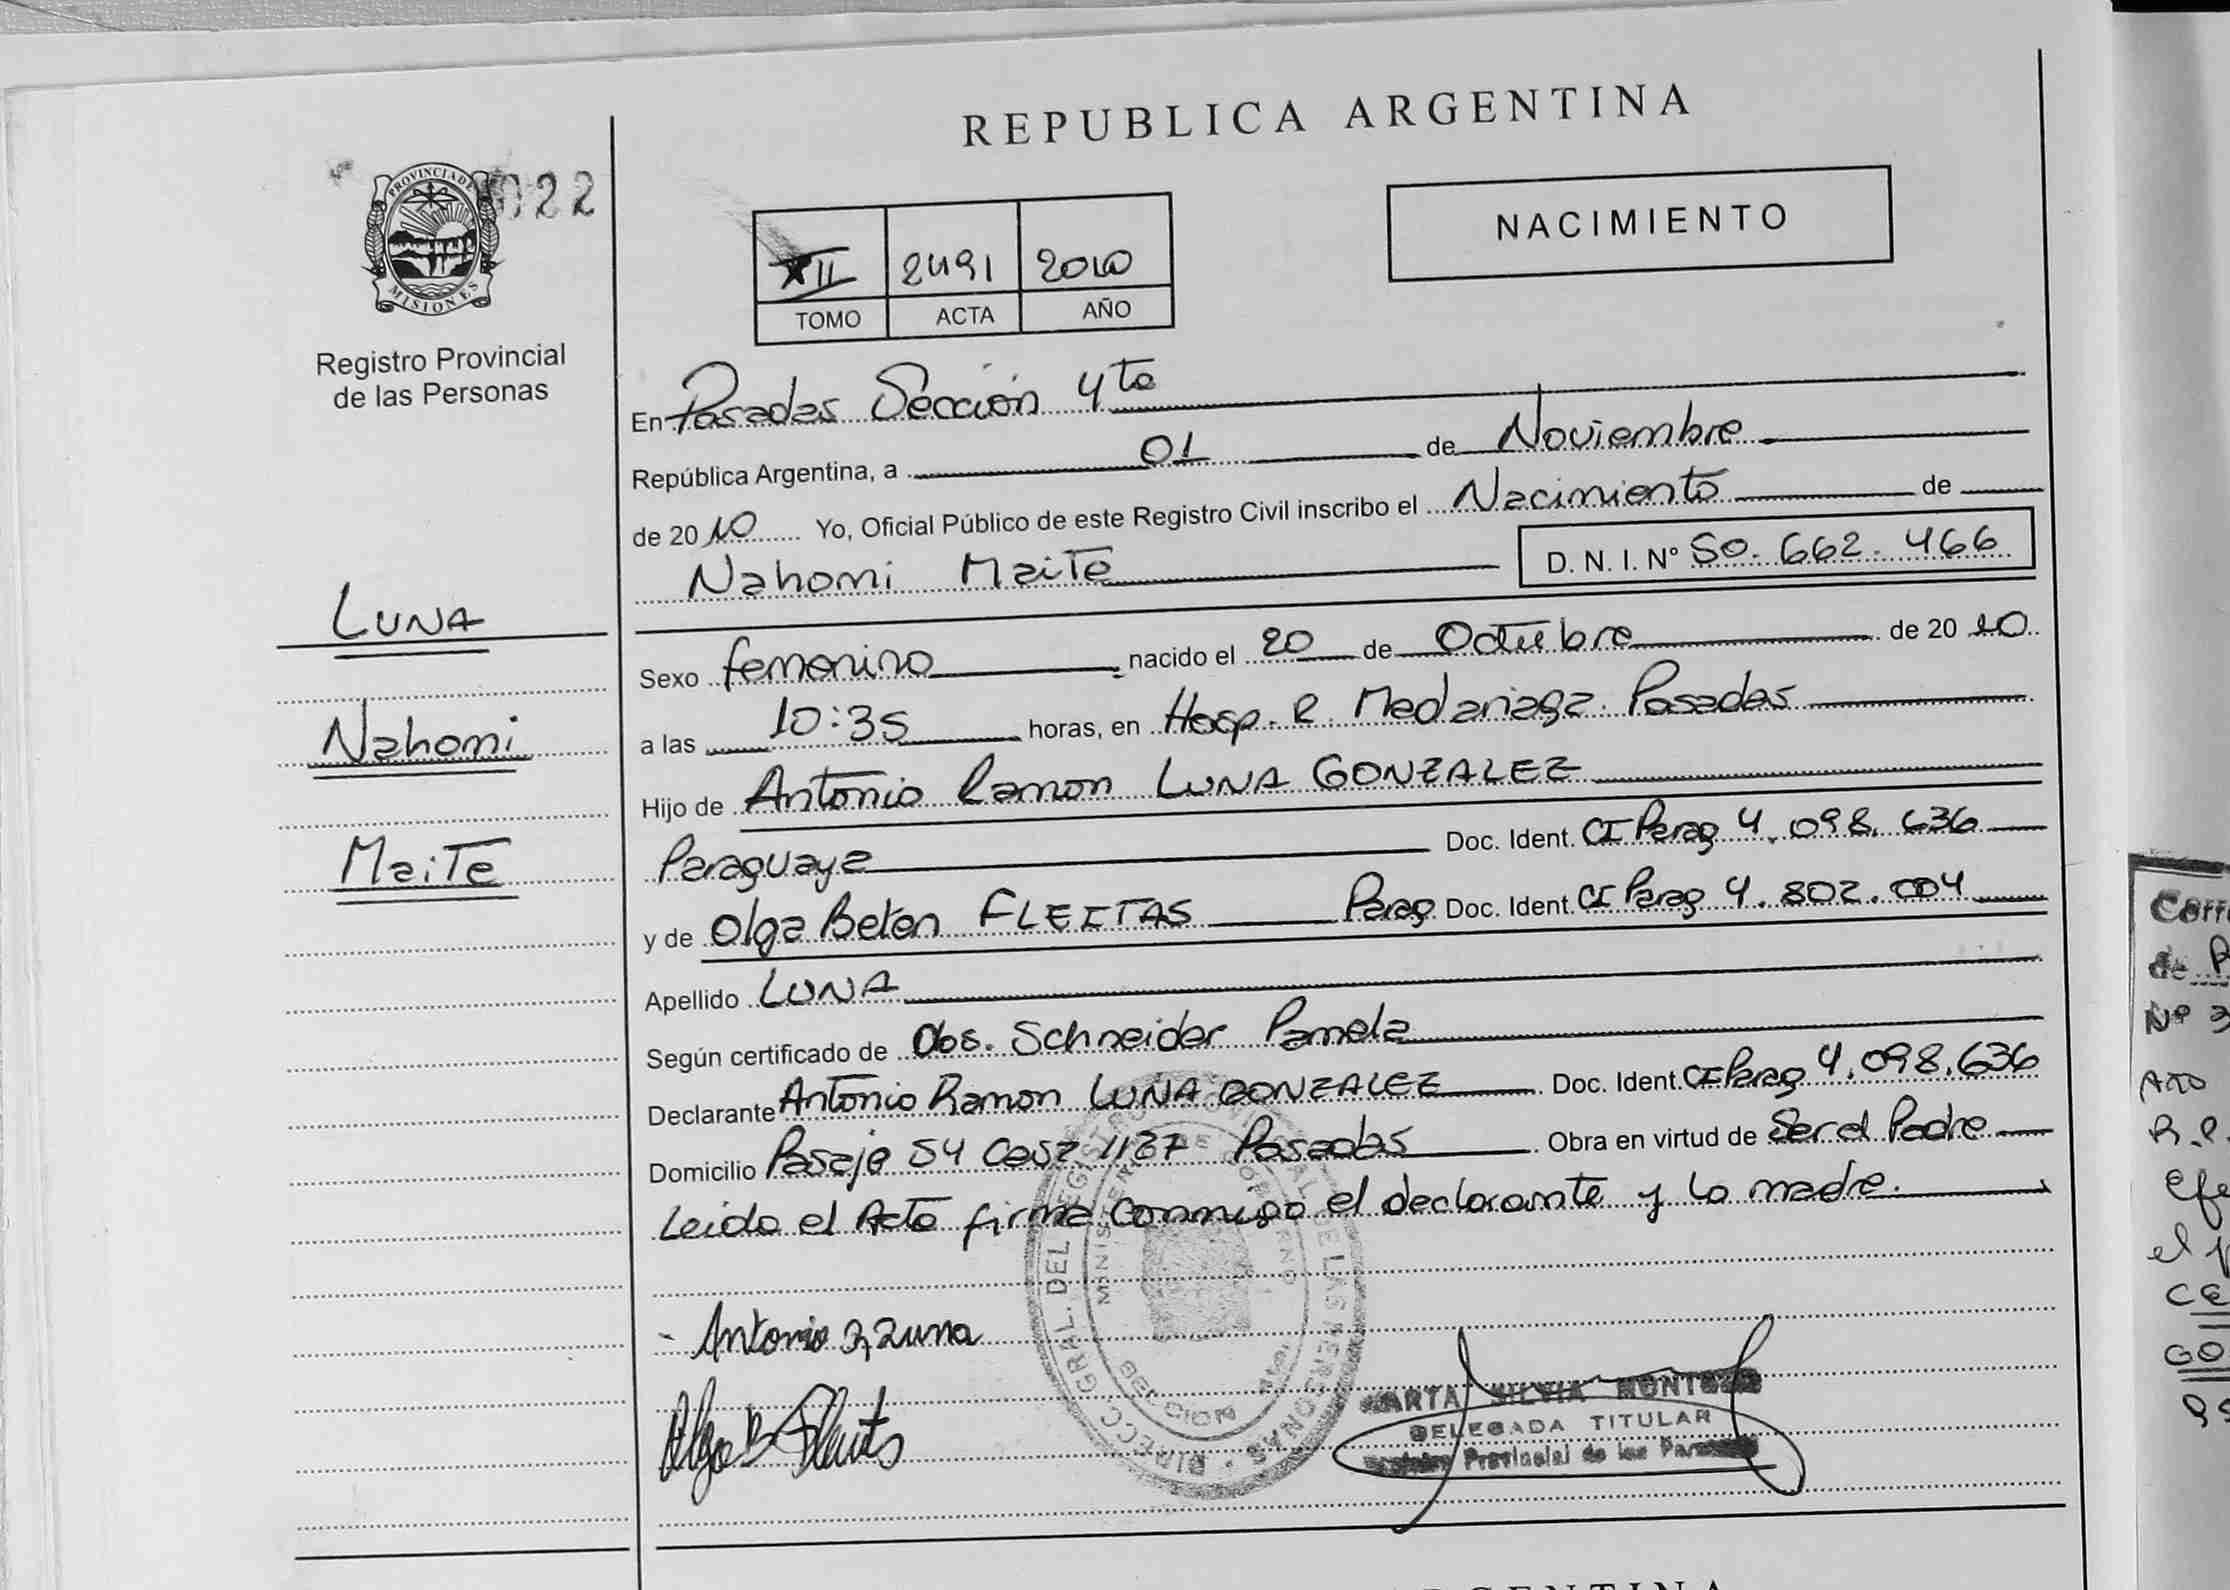 REPUBLICA ARGENTINA
PROVINCIA DE
MISIONES
022
Registro Provincial
de las Personas
NACIMIENTO
XII 2491 2010
TOMO ACTA AÑO
En Posadas Sección 4ta
República Argentina, a 01 de Noviembre
de 2010 Yo, Oficial Público de este Registro Civil inscribo el Nacimiento de
Nahomi Maite D. N. I. Nº 50.662.466
LUNA
Nahomi
Maite
Sexo femenino nacido el 20 de Octubre de 2010
a las 10:35 horas, en Hosp. R. Madariaga. Posadas
Hijo de Antonio Ramon LUNA GONZALEZ
Paraguaya Doc. Ident. CI Parag 4.098.636
y de Olga Belen FLEITAS Parag Doc. Ident. CI Parag 4.802.004
Apellido LUNA
Según certificado de Obs. Schneider Pamela
Declarante Antonio Ramon LUNA GONZALEZ Doc. Ident. CI Parag 4.098.636
Domicilio Pasaje 54 Casa 1137 Posadas Obra en virtud de Ser el Padre
Leida el Acta firma conmigo el declarante y la madre.
Antonio Luna
Olga B Fleitas
SILVIA
DELEGADA TITULAR
Provincial de las
DIRECC. GRAL. DEL REGISTRO PROVINCIAL DE LAS PERSONAS
MINISTERIO DE GOBIERNO
de
Nº 3
el